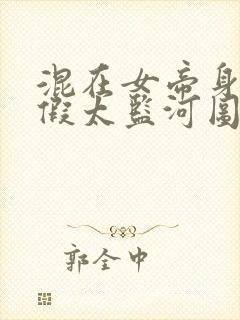 混在女帝身
假太监河图
郭全中